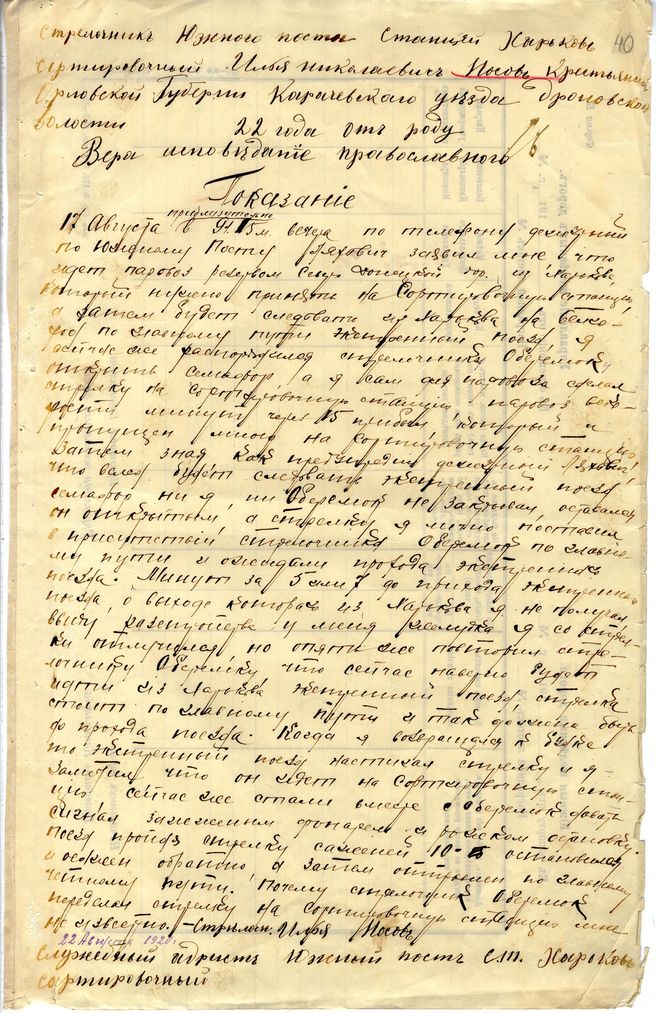 40
Стрелочникъ Южного поста Станцiи Харьковъ
сортировочный Илья Николаевичъ Носовъ Крестьянинъ
Орловской Губернiи Карачевского уѣзда Дроновской
волости 22 года отъ роду
Вера исповѣданiе православного
Показанiе
приблизительно
17 Августа в 9ч. 15м. вечера по телефону дежурный
по Южному Посту Ляхович заявил мне что
идет паровоз резервом Север Донецкой дор. из Харькова,
который нужно принять на Сортировочную станцию,
а затем будет следовать из Харькова на Белго-
род по главному пути экстренный поезд, я
сейчас же распорядился стрелочнику Оберемоку
открыть семафор, а я сам для паровоза сделал
стрелку на сортировочную станцию, паровоз
минут через 15 прибыл, который и
пропущен мною на Сортировочную станцию.
Затем зная как предупредил дежурный Ляхович,
что вслед будет следовать экстренный поезд
семафор ни я, ни Оберемок не закрывал, оставался
он открытым, а стрелку я лично поставил
в присутствии стрелочника Оберемок по главно-
му пути и ожидали прохода экстренного
поезда. Минут за 5 или 7 до прихода экстренного
поезда, о выходе которого из Харькова я не получал,
ввиду разстройства у меня желудка я со стрел-
ки отлучился, но опять же повторил стре-
лочнику Оберемоку, что сейчас наверно будет
идти из Харькова экстренный поезд, стрелка
стоит по главному пути и так должна быть
до прохода поезда. Когда я возвращался к будке
то экстренный поезд настигал стрелку и я
заметил что он идет на Сортировочную стан-
цию сейчас же стали вместе с Оберемок давать
сигнал зажженным фонарем и рожком остановку.
Поезд пройдя стрелку саженей 10-15 остановился
и осажен обратно а затем отправлен по главному
четному пути. Почему стрелочник Оберемок
переделал стрелку на сортировочную станцию мне
не известно. – Стрелоч. Илья Носовъ
22 Августа 1920 г.
Служебный адристъ Южный постъ ст. Харьковъ
сортировочный